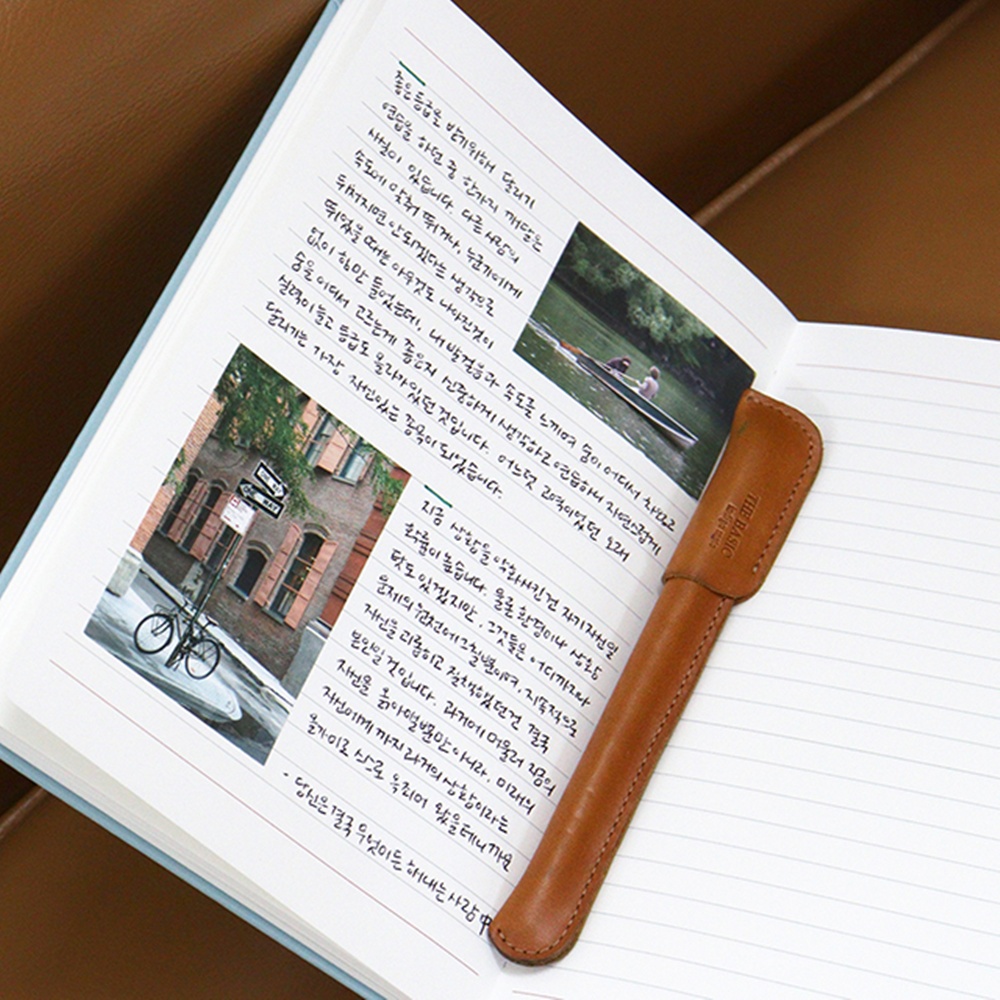 좋은 등급을 받기위해 달리기
연습을 하던 중 한가지 깨달은
사실이 있습니다. 다른 사람의
속도에 맞춰 뛰거나, 누군가에게
뒤쳐지면 안되겠다는 생각으로
뛰었을 때는 아무것도 나아진것
없이 힘만 들었는데, 내 발걸음과 속도를 느끼며 숨이 어디서 차오르고
숨을 어디서 고르는게 좋은지 신중하게 생각하고 연습하니 자연스럽게
실력이 늘고 등급도 올라가 있던 것입니다. 어느덧 20역이었던 오래
달리기는 가장 자신있는 종목이 되었습니다.
지금 상황을 악화시킨건 자기자신일
확률이 높습니다. 물론 환경이나 상황
탓도 있겠지만, 그것들은 어디까지나
문제의 원천에 그칠뿐이며, 지속적으로
자신을 괴롭히고 질책했던건 결국
본인일 것입니다. 과거에 머물러 지금의
자신을 옭아맬뿐만 아니라, 미래의
자신에게 까지 과거의 상황이라는
올가미로 스스로 옥죄여 왔을테니까요
- 당신은 결국 무엇이든 해내는 사람 中
THE BASIC